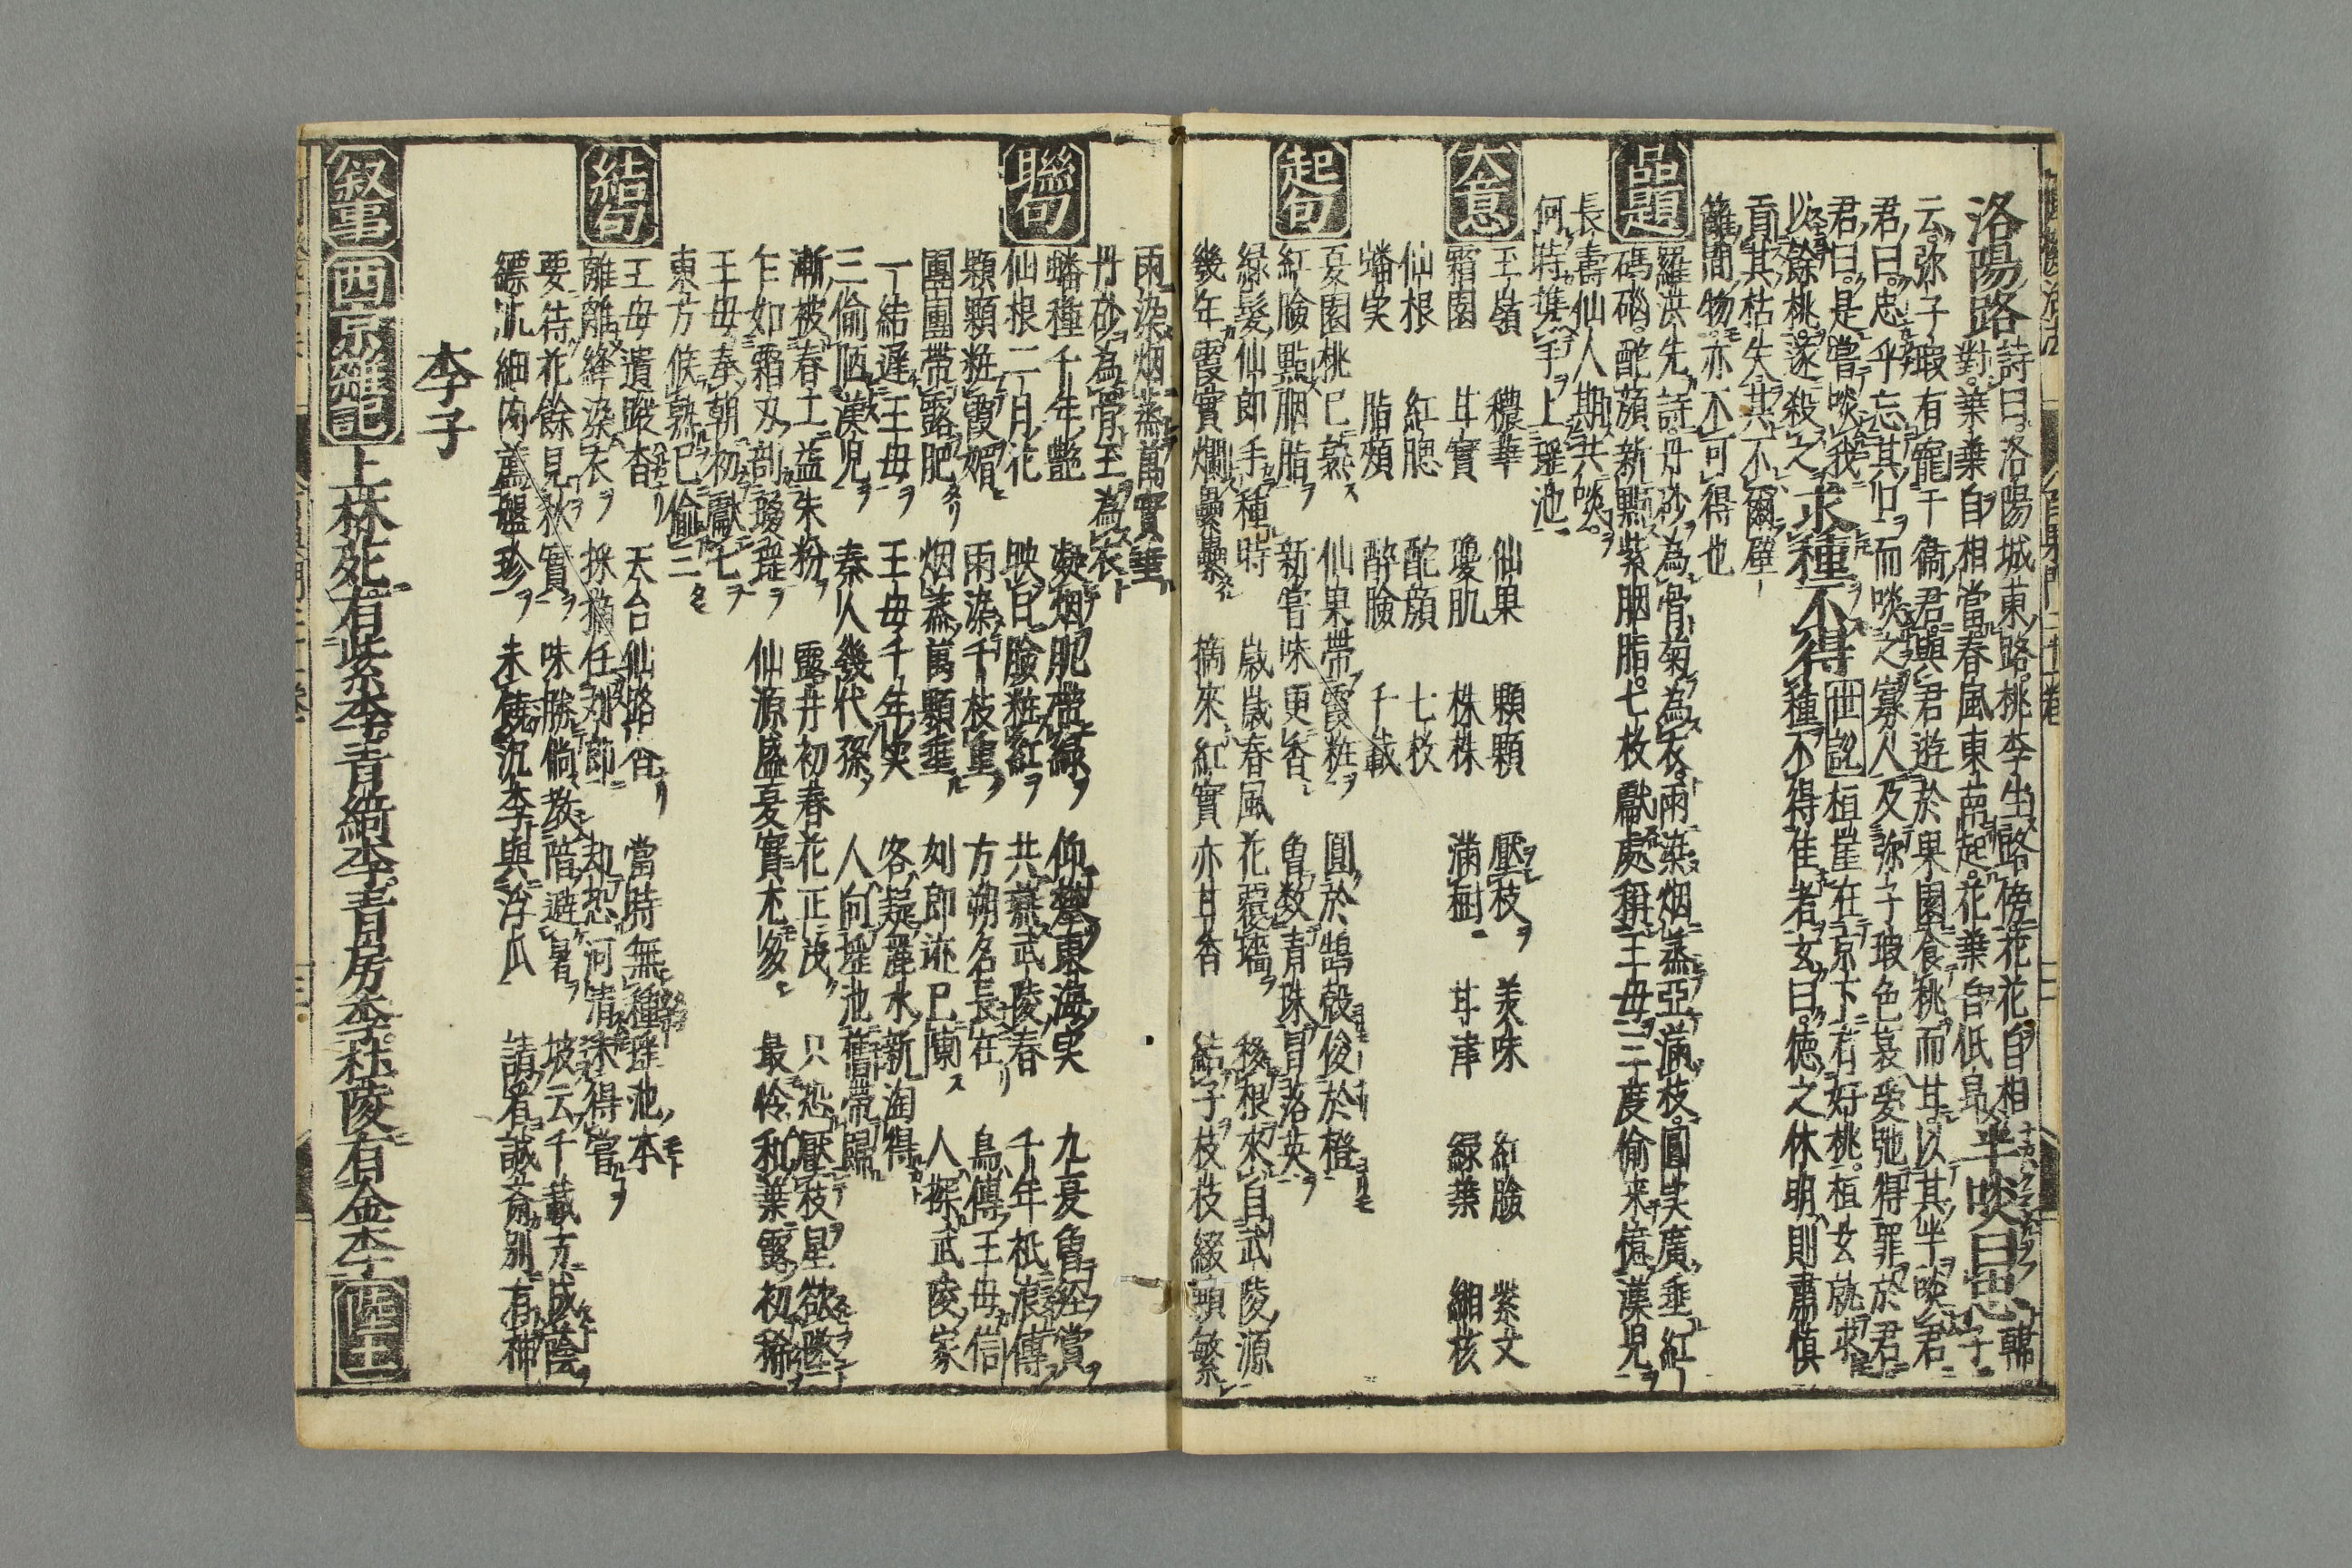 洛陽路
詩曰洛陽城東路桃李生路傍花花自相
對葉葉自相當春風東南起花葉自低昻
半啖曰忠
韓子
云弥子瑕有寵于衞君與君遊於果園食桃而甘以其半啖君
君曰忠乎忘其口而啖之寡人及弥子瑕色衰愛弛得罪於君
君曰是嘗啖我
以餘桃遂殺之
求種不得
世説
桓崖在京下有好桃桓玄就求
種不得佳者玄曰德之休明則肅慎
貢其楛矢其不爾籬壁
籬間物亦不可得也
品題
羅洪先詩丹砂為骨菊為衣雨染烟蒸亞滿枝圓実廣垂紅
碼碯酡顔新點紫胭脂七枚獻處稱王母三度偷来憶漢児
長壽仙人期共啖
何時携手上瑶池
大意
玉嶺 穠華 仙果 顆顆 壓枝 美味 紅臉 紫文
霜園 甘實 瓊肌 株株 滿樹 甘津 緑葉 細核
仙根 紅腮 酡顔 七枚
蟠実 脂頰 醉臉 千載
起句
夏園桃已慕 仙果帶霞粧 圓於鵠殼俊於橙
紅臉點胭脂 新嘗味更香 魯数青珠冒落英
緑髮仙郎手種時 歳歳春風花覆墻 移根來自武陵源
幾年霞實爛纍纍 摘來紅實亦甘香 結子枝枝綴顆繁
雨染烟蒸萬實垂
丹砂為骨玉為衣
聯句
蟠種千年艷 凝烟肥帶緑 仰攀東海実 九夏魯經賞
仙根二月花 映日臉粧紅 共慕武陵春 千年祇浪傳
顆顆粧霞媚 雨染千枝重 方朔名長在 鳥傳王母信
團團帶露肥 烟蒸萬顆垂 刘郎迹已陳 人探武陵家
一結遲王母 王母千年実 客疑麗水新淘得
三偷陋漢児 秦人幾代孫 人向瑶池舊帶歸
漸被春工益朱粉 露井初春花正茂 只恐壓枝星欲墜
乍如霜刃剖瑷琨 仙源盛夏實尤多 最怜和葉露初稀
王母奉朝初獻七
東方候熟已偷三
結句
王母遺蹤杳 天台仙路合 當時無種瑶池本
離離絳染衣 採摘任刘郎 却恐何淸未得嘗
要待花餘見秋實 味勝倘教階避暑 坡云千載方成蔭
縹肌細肉薦盤珍 未饒沉李與浮瓜 請看誠齋别有神
李子
叙事
西京雜記
上林苑有紫李青綺李青房李杜陵有金李
陸士